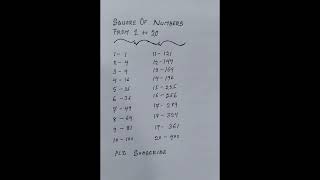 SQUARE OF NUMBERS
FROM 1 to 20
1 - 1
2 - 4
3 - 9
4 - 16
5 - 25
6 - 36
7 - 49
8 - 64
9 - 81
10 - 100
11 - 121
12 - 144
13 - 169
14 - 196
15 - 225
16 - 256
17 - 289
18 - 324
19 - 361
20 - 400
PLZ SUBSCRIBE